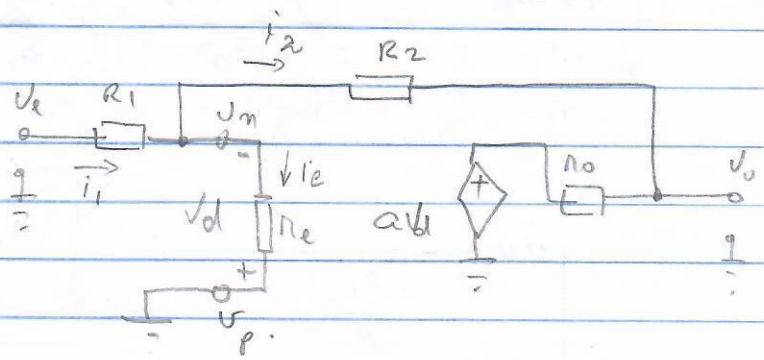 i2
R2
Ve
R1
Vn
-
i1
ie
Vd
re
aVd
+
ro
Vo
+
Vp